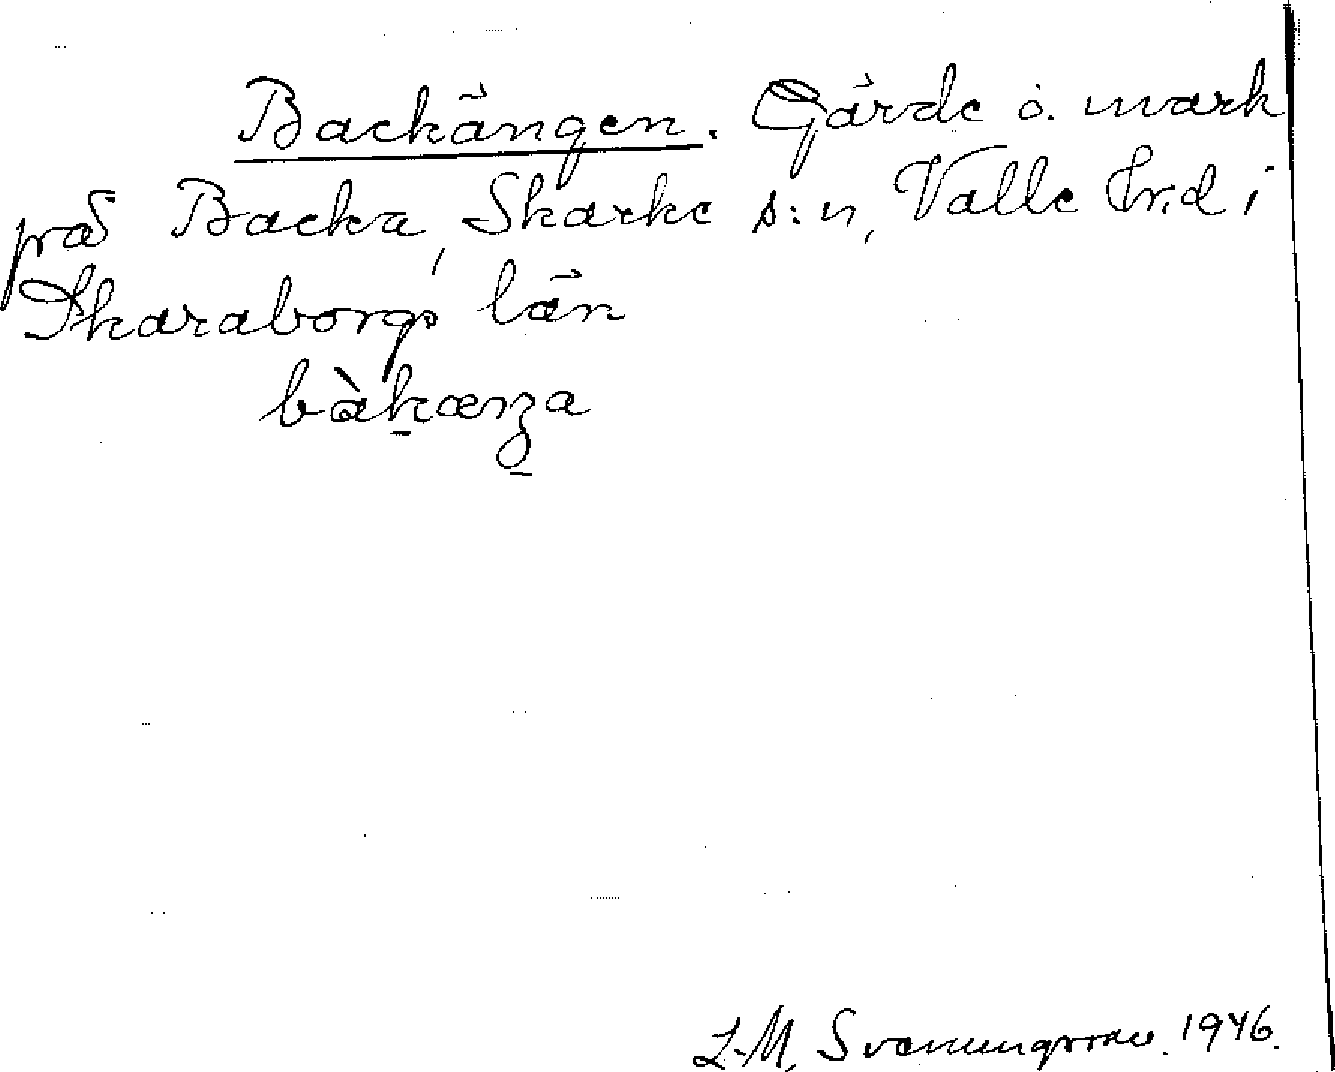 Backängen. Gärde o. mark
på Backa, Skarke s:n, Valle hrd i
Skaraborgs län
bàkæŋa
L-M. Svenungsson. 1946.